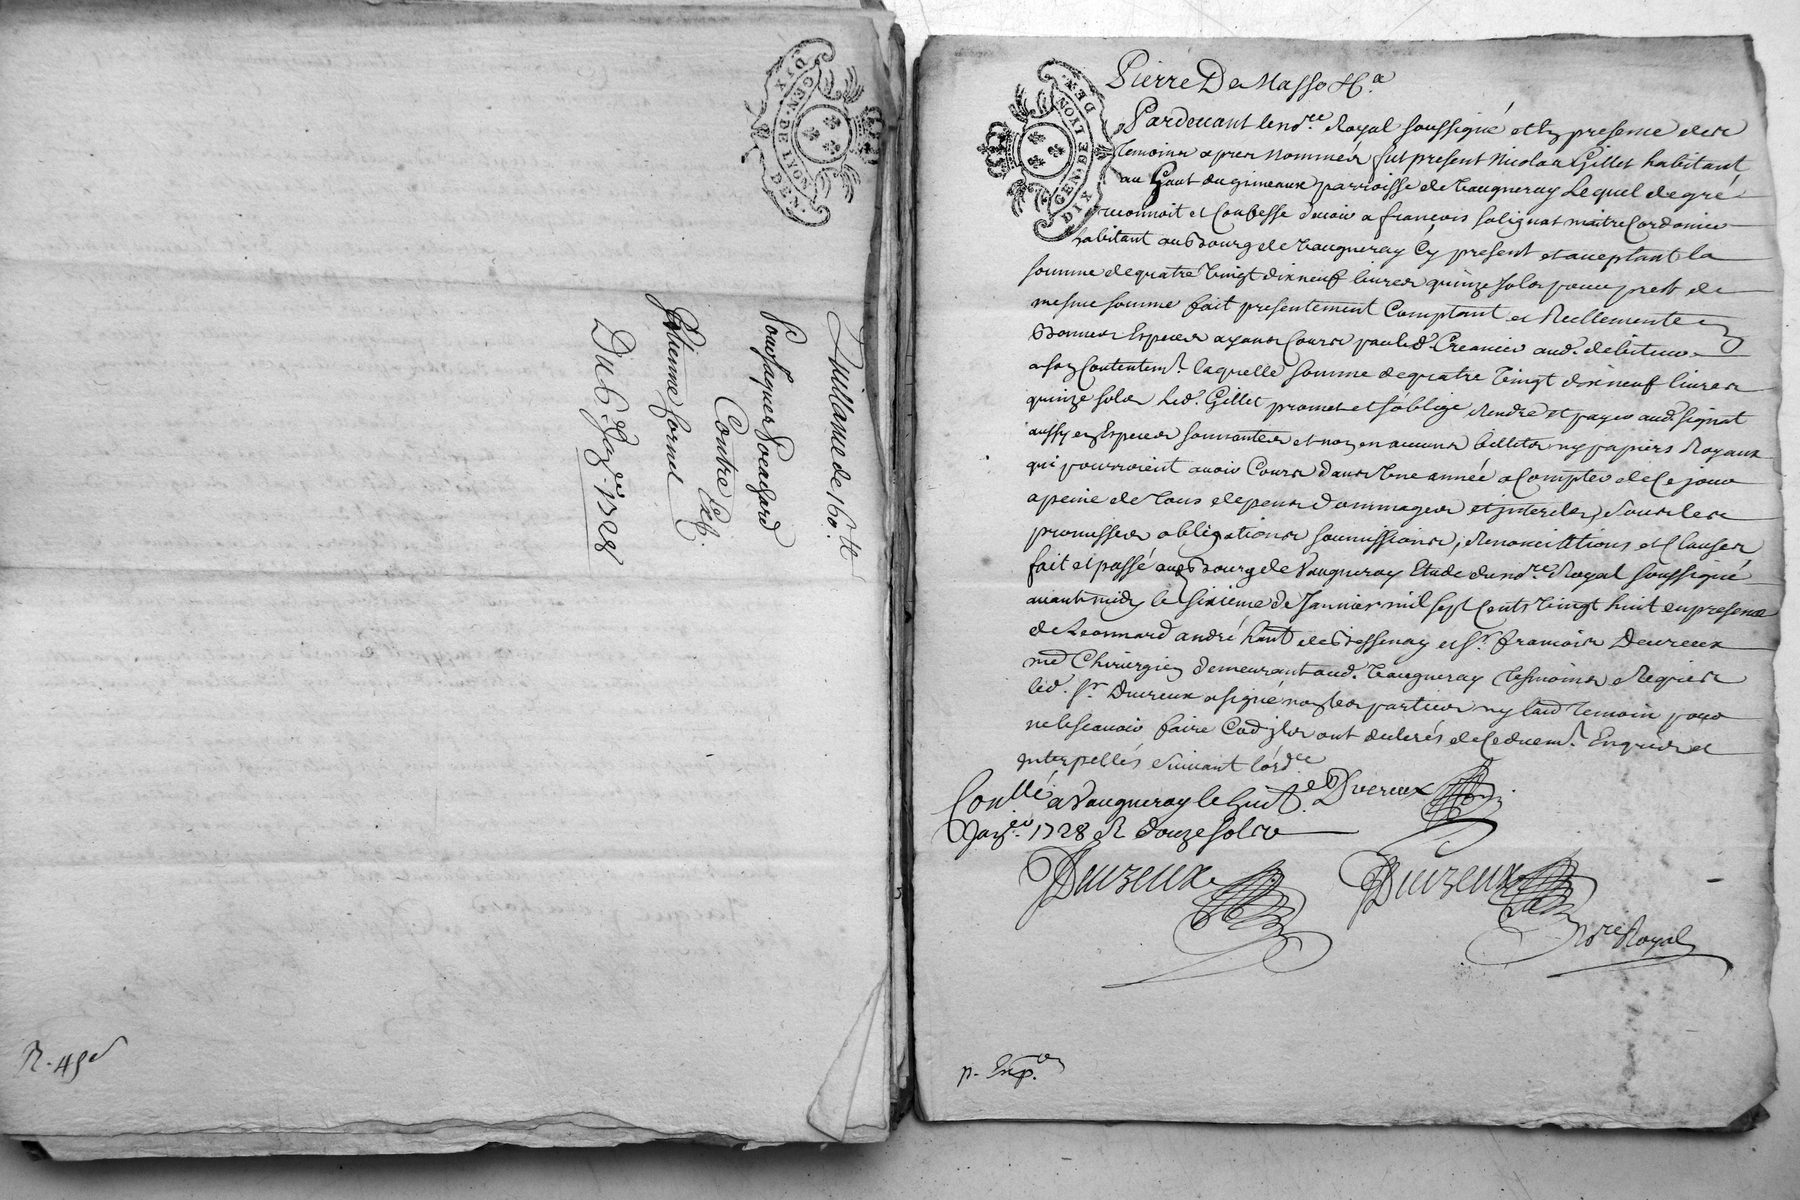 DIX
GEN. DE LYON
DEN.
Quittance de 160.tt
Pour Jaques
Contre
Estienne fornel
Du 6e Janer 1728
R. 45d
Pierre De Masso &a
DEN.
GEN. DE LYON
DIX
Pardevant le nore Royal soussigné et en presence des
temoins apres nommés fut present Nicolas Gillet habitant
au parroisse de Vaugneray Lequel de gré
reconnoit et Confesse devoir a françois solignat maitre Cordonier
habitant au Bourg de Vaugneray Cy present et acceptant la
somme de quatre Vingt dix neuf livres quinze sols pour prest de
mesme somme fait presentement Comptant et Reellement en
Bonnes Especes ayans Cours par led. Creancier aud. debiteur
a son Contentemt. laquelle somme de quatre Vingt dix neuf livres
quinze sols Led. Gillet promet et s'oblige Rendre et payer aud.
aussy en Especes sonnantes et non en aucuns billets ny papiers Royaux
qui pourroient avoir Cours dans Une année a Compter de Ce jour
a peine de tous depens dommages et interets, sous les
promesses obligations soumissions, Renonciations et Clauses
fait et passé au Bourg de Vaugneray Etude du nore Royal soussigné
avant midy le sixieme de Janvier mil sept Cents Vingt huit en presence
de Leonnard andré hant de Bessenay et Sr. francois Ducreux
me Chirurgien demeurant aud. Vaugneray tesmoins Requis
led. Sr Ducreux a signé non les parties ny laud temoin pour
ne le scavoir faire ont declarés de Ce duemt. Enquis et
interpellés suivant l'ordce
Conllé a Vaugneray le huite Ducreux
Janer. 1728 R douze sols
Ducreux
Ducreux
Nore Royal
p. Exp.on